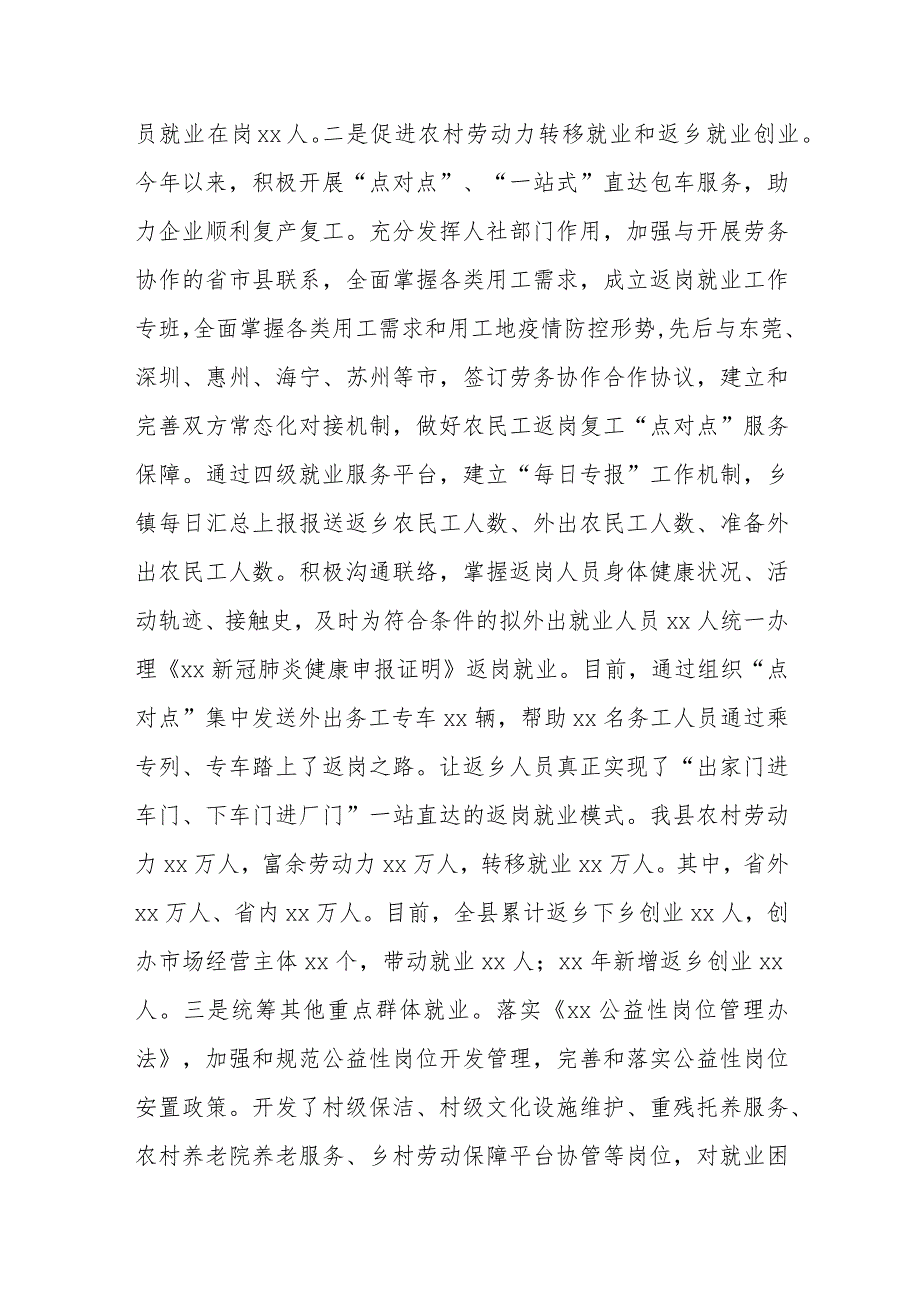 员就业在岗xx人。二是促进农村劳动力转移就业和返乡就业创业。
今年以来，积极开展“点对点”、“一站式”直达包车服务，助
力企业顺利复产复工。充分发挥人社部门作用，加强与开展劳务
协作的省市县联系，全面掌握各类用工需求，成立返岗就业工作
专班,全面掌握各类用工需求和用工地疫情防控形势,先后与东莞、
深圳、惠州、海宁、苏州等市，签订劳务协作合作协议，建立和
完善双方常态化对接机制，做好农民工返岗复工“点对点”服务
保障。通过四级就业服务平台，建立“每日专报”工作机制，乡
镇每日汇总上报报送返乡农民工人数、外出农民工人数、准备外
出农民工人数。积极沟通联络，掌握返岗人员身体健康状况、活
动轨迹、接触史，及时为符合条件的拟外出就业人员xx人统一办
理《xx新冠肺炎健康申报证明》返岗就业。目前，通过组织“点
对点”集中发送外出务工专车xx辆，帮助xx名务工人员通过乘
专列、专车踏上了返岗之路。让返乡人员真正实现了“出家门进
车门、下车门进厂门”一站直达的返岗就业模式。我县农村劳动
力xx万人，富余劳动力xx万人，转移就业xx万人。其中，省外
xx万人、省内xx万人。目前，全县累计返乡下乡创业xx人，创
办市场经营主体xx个，带动就业xx人；xx年新增返乡创业xx
人。三是统筹其他重点群体就业。落实《xx公益性岗位管理办
法》，加强和规范公益性岗位开发管理，完善和落实公益性岗位
安置政策。开发了村级保洁、村级文化设施维护、重残托养服务、
农村养老院养老服务、乡村劳动保障平台协管等岗位，对就业困